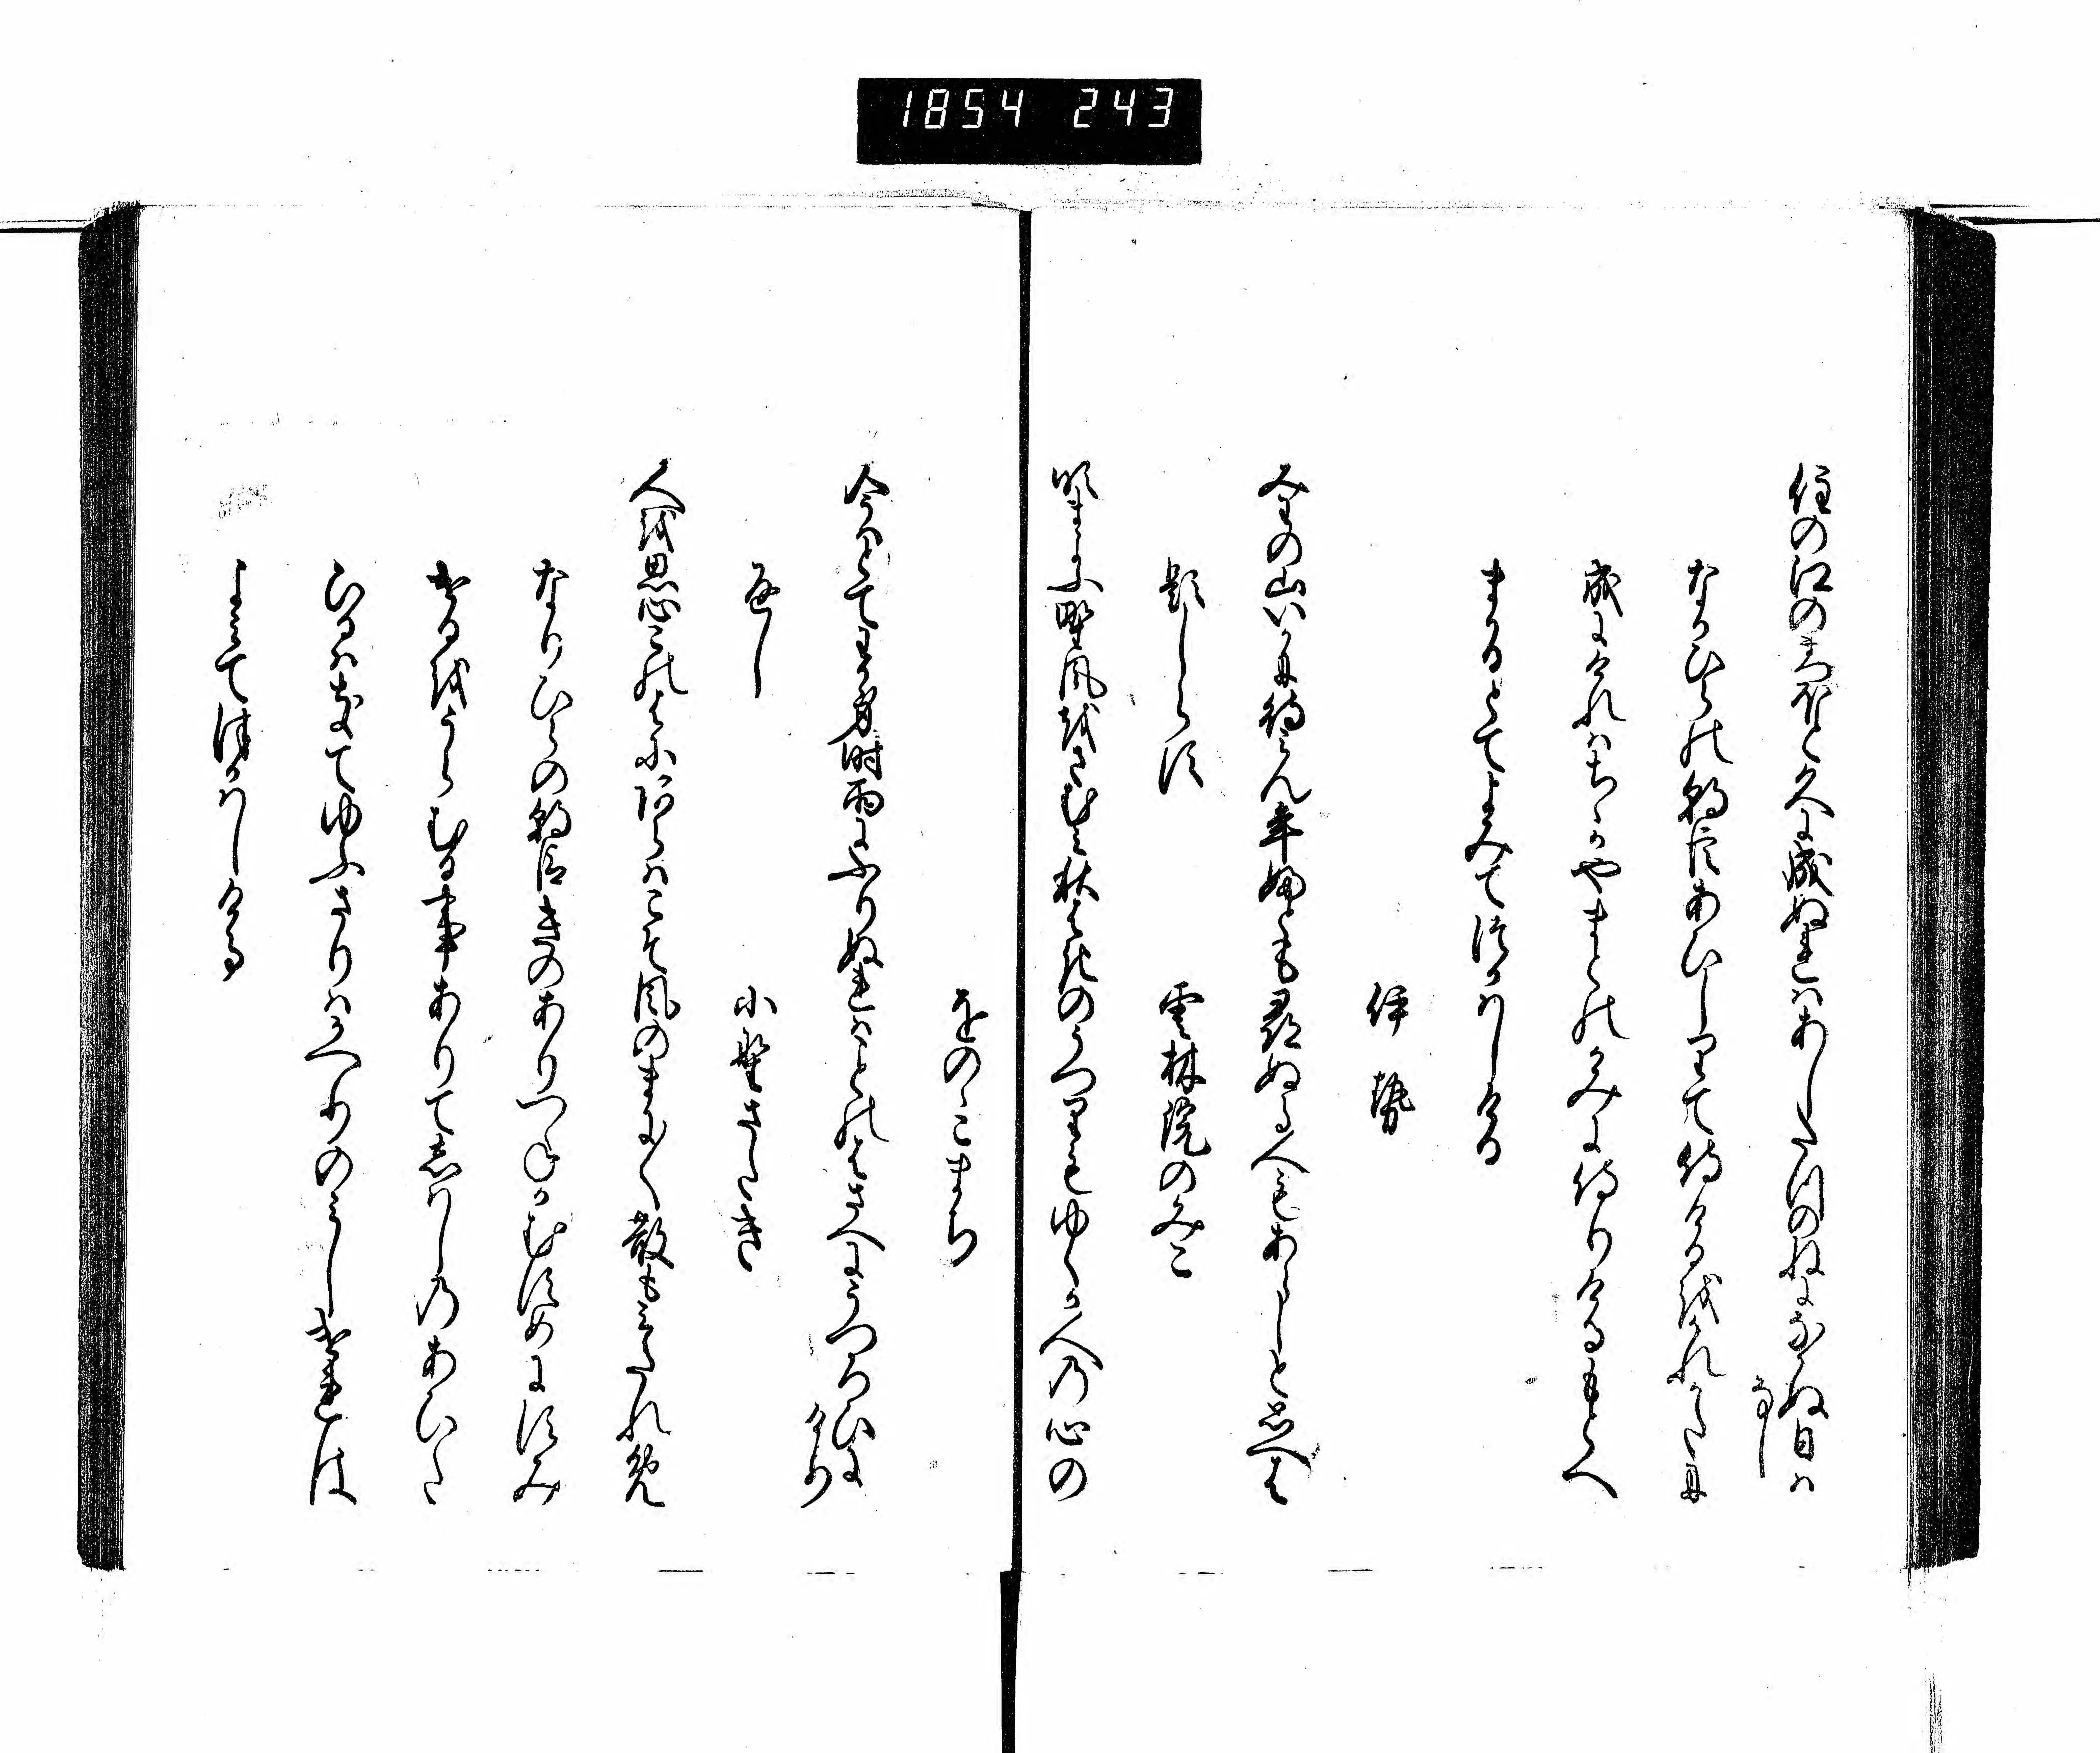 1854 243
住の江のまつほと久に成ぬれはあしたつのねになかぬ日は
なし
なかひらの朝臣あひしりて侍けるをかれかたに
成にけれはちゝかやまとのかみに侍りけるもとへ
まかるとてよみてつかはしける
伊勢
みわの山いかに待みん年ふとも尋ぬる人もあらしと思へは
題しらす
雲林院のみこ
吹まよふ野風をさむみ秋はきのうつりもゆくか人の心の
をのゝこまち
今はとてわか身時雨にふりぬれはことのはさへにうつろひに
けり
返し
小野さたき
人を思心このはにあらはこそ風のまに〱散もみたれめ
なりひらの朝臣きのありつねかむすめにすみ
けるをうらむる事ありてしはしのあひた
ひるはきてゆふさりはかへりのみしけれは
よみてつかはしける